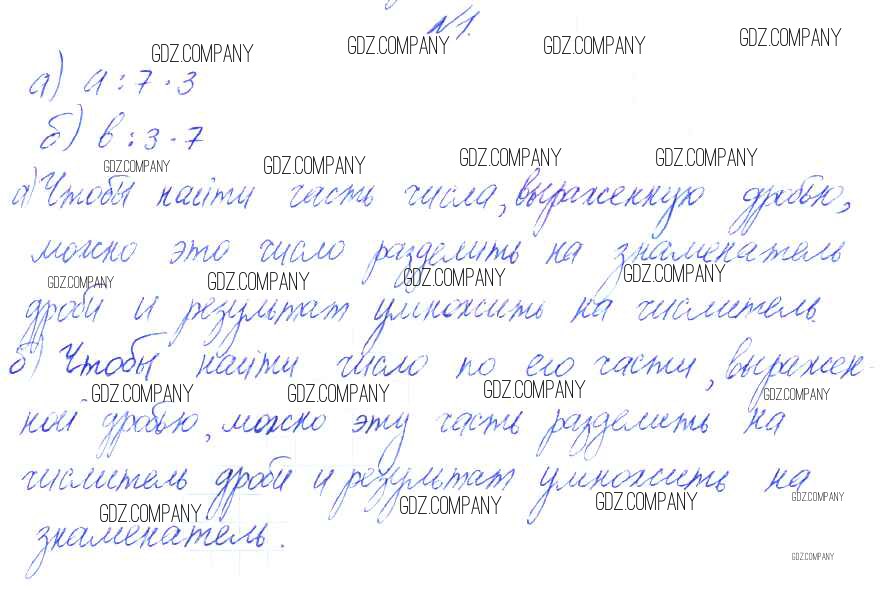 №1.
GDZ.COMPANY GDZ.COMPANY GDZ.COMPANY GDZ.COMPANY
а) а : 7 · 3
б) в : 3 · 7
GDZ.COMPANY GDZ.COMPANY GDZ.COMPANY GDZ.COMPANY
а) Чтобы найти часть числа, выраженную дробью,
можно это число разделить на знаменатель
GDZ.COMPANY GDZ.COMPANY GDZ.COMPANY GDZ.COMPANY
дроби и результат умножить на числитель.
б) Чтобы найти число по его части, выражен-
GDZ.COMPANY GDZ.COMPANY GDZ.COMPANY GDZ.COMPANY
ной дробью, можно эту часть разделить на
числитель дроби и результат умножить на
GDZ.COMPANY GDZ.COMPANY GDZ.COMPANY GDZ.COMPANY
знаменатель.
GDZ.COMPANY